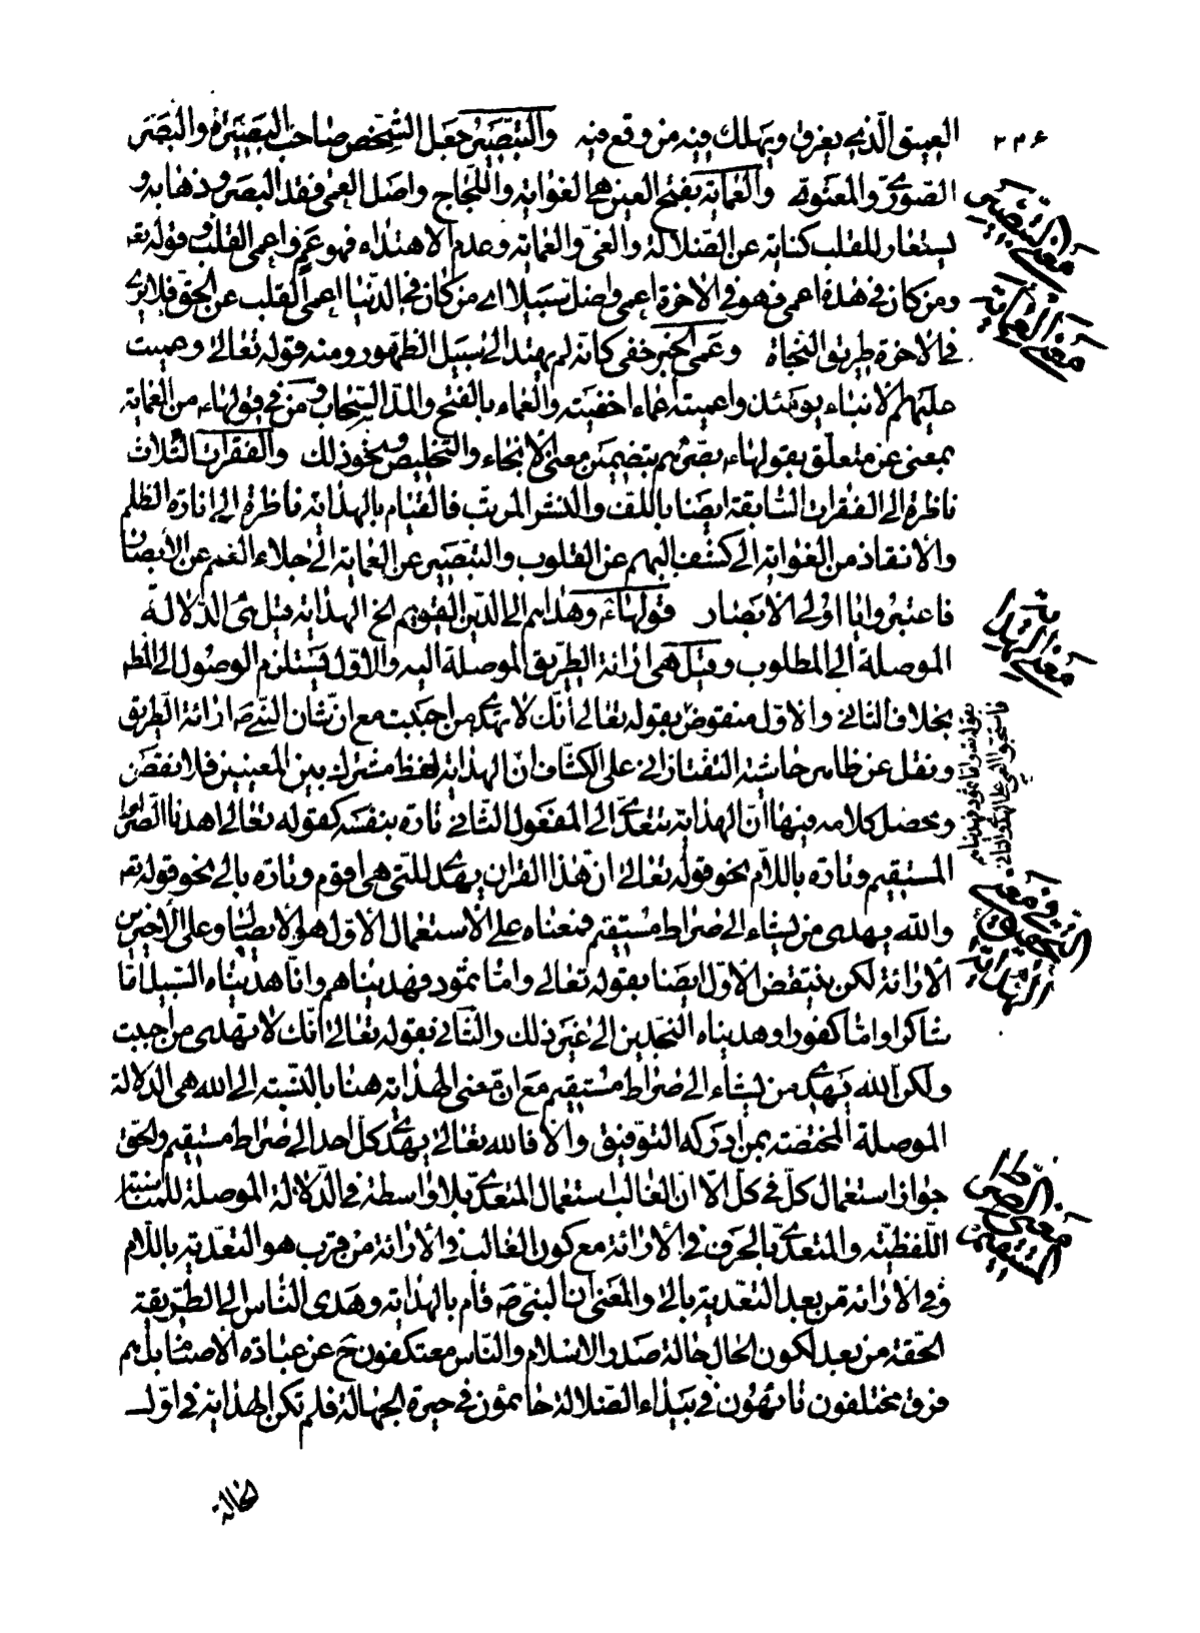 ٢٣۶
العميق الّذي يغرق ويهلك فيه من وقع فيه والتبصير جعل الشّخص صاحب البصيرة والبصر
الصّوريّ والمعنويّ والعماية بفتح العين هي الغواية واللّجاج واصل العمى فقد البصر وذهابه و
يستعار للقلب كناية عن الضّلالة والغيّ والعماية وعدم الاهتداء فهو عَمٍ واعمى القلب وقوله تعـ
ومن كان في هذه اعمى فهو في الآخرة اعمى واضلّ سبيلا اى من كان في الدّنيا اعمى القلب عن الحقّ فلا يرى
في الآخرة طريق النّجاة وعمى الخبر خفى كانّه لم يهتد الى سبيل الظّهور ومنه قوله تعالى وعميت
عليهم الانباء يومئذ واعميته اعماء اخفيته والعماء بالفتح والمدّ السّحاب ومن في قولهاء من العماية
بمعنى عن متعلّق بقولهاء بصّرهم بتضمين معنى الانجاء والتّخليص ونحو ذلك والفقرات الثّلاث
ناظرة الى الفقرات السّابقة ايضا باللّف والنّشر المرتّب فالقيام بالهداية ناظرة الى انارة الظلم
والانقاذ من الغواية الى كشف البهم عن القلوب والتبصير عن العماية الى جلاء الغمم عن الأبصار
فاعتبروا يا اولى الأبصار قولهاء وهداهم الى الدّين القويم الخ الهداية قيل هى الدّلالة
الموصلة الى المطلوب وقيل هى ارائة الطّريق الموصلة اليه والاوّل يستلزم الوصول الى المط
بخلاف الثّاني والاوّل منقوض بقوله تعالى انّك لا تهدى من احببت مع انّ شان النّبي ص ارائة الطّريق
ونقل عن ظاهر حاشية التفتازانى على الكشّاف انّ الهداية لفظ مشترك بين المعنيين فلا نقض
ومحصّل كلامه فيها انّ الهداية يتعدّى الى المفعول الثّاني تارة بنفسه كقوله تعالى اهدنا الصّراط
المستقيم وتارة باللّام نحو قوله تعالى انّ هذا القران يهدى للّتى هى اقوم وتارة بالى نحو قوله تعـ
والله يهدى من يشاء الى صراط مستقيم فمعناه على الاستعمال الأوّل هو الايصال وعلى الأخيرين
الأرائة لكن ينتقض الأوّل ايضا بقوله تعالى وامّا ثمود فهديناهم وانّا هديناه السّبيل امّا
شاكرا وامّا كفورا وهديناه النّجدين الى غير ذلك والثّانى بقوله تعالى انّك لا تهدى من احببت
ولكنّ الله يهدى من يشاء الى صراط مستقيم مع انّ معنى الهداية هنا بالنّسبة الى الله هى الدّلالة
الموصلة المختصّة بمن ادركه التوفيق والّا فالله تعالى يهدى كلّ احد الى صراط مستقيم والحقّ
جواز استعمال كلّ في كلّ الّا انّ الغالب استعمال المتعدّى بلا واسطة في الدّلالة الموصلة للمناسبة
اللّفظيّة والمتعدّى بالحرف في الأرائة مع كون الغالب في الأرائة من قرب هو التعدية باللّام
وفى الأرائة من بعد التعدية بالى والمعنى انّ النّبىّ ص قام بالهداية وهدى النّاس الى الطّريقة
الحقّة من بعد لكون الحال حالة صدر الاسلام والنّاس معتكفون ح عن عبادة الاصنام بل هم
فرق مختلفون تائهون في بيداء الضّلالة حائمون في حيرة الجهالة فلم تكن الهداية في اوّل
الحالة
معنى التّبصير
معنى العماية
معنى الهداية
في معنى
التّحقيق
الهداية
معنى الصراط
المستقيم